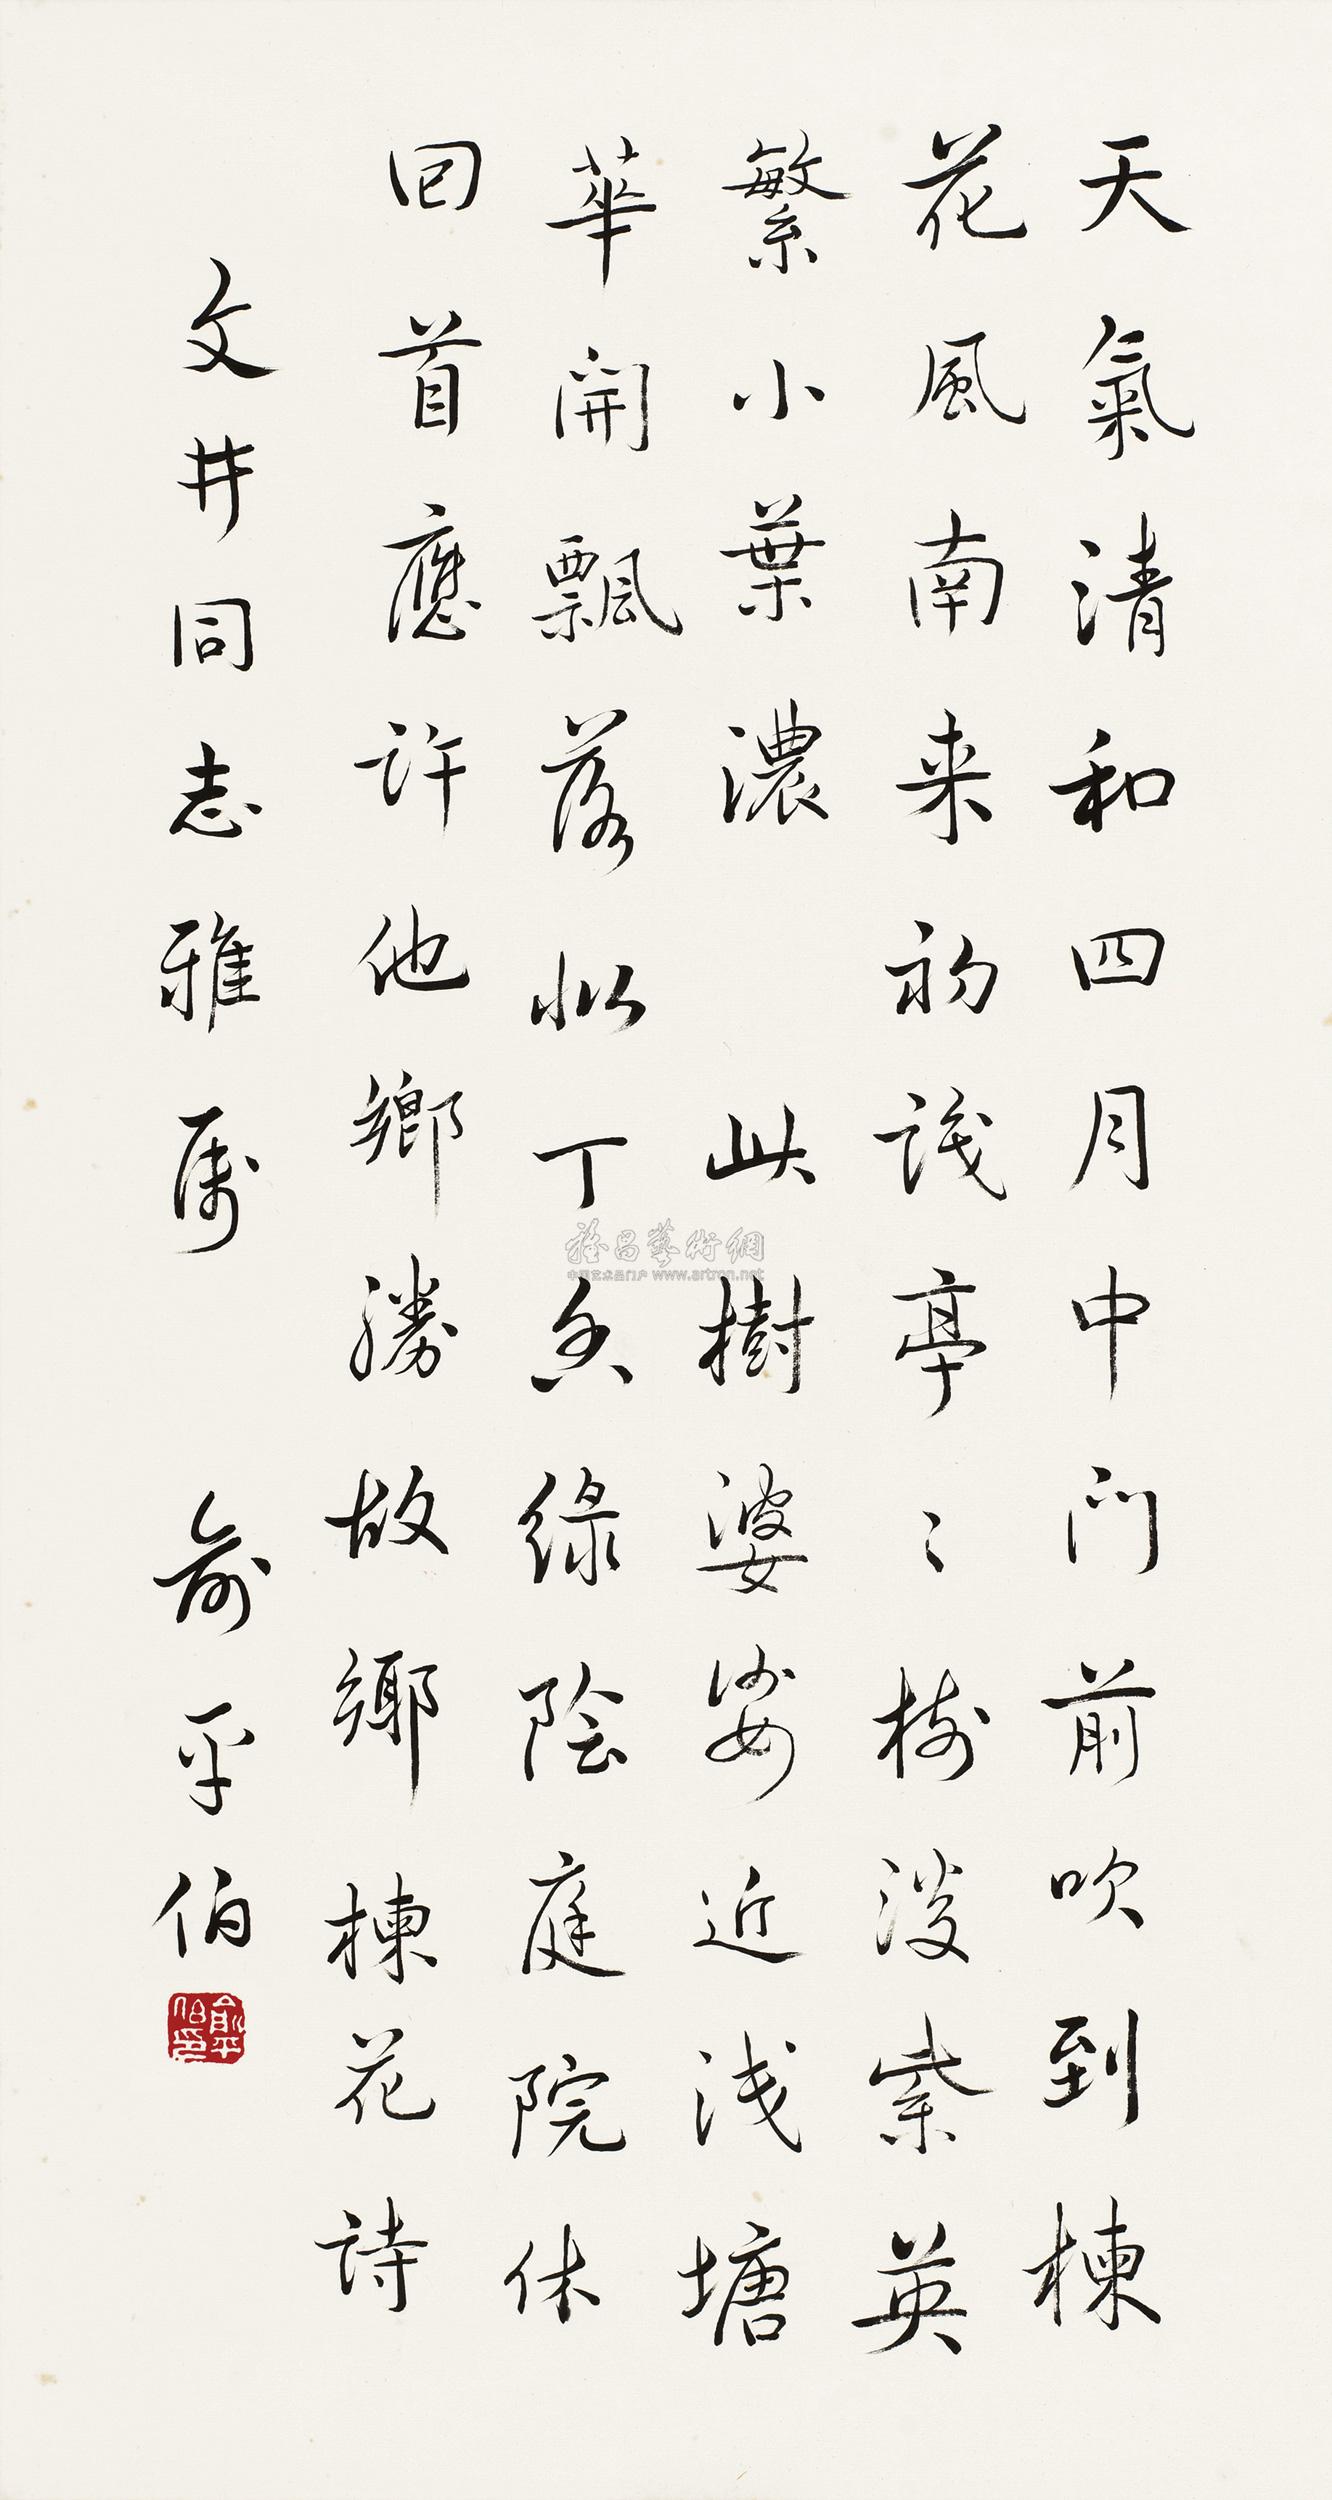 天氣清和四月中门前吹到楝
花風南来初識亭〻樹淡紫英
繁小葉濃 此樹婆娑近浅塘
華開飄落似丁香綠陰庭院休
回首應许他鄉勝故鄉楝花詩
文井同志雅属 俞平伯
俞平伯印
雅昌藝術網
中国艺术品门户 www.artron.net